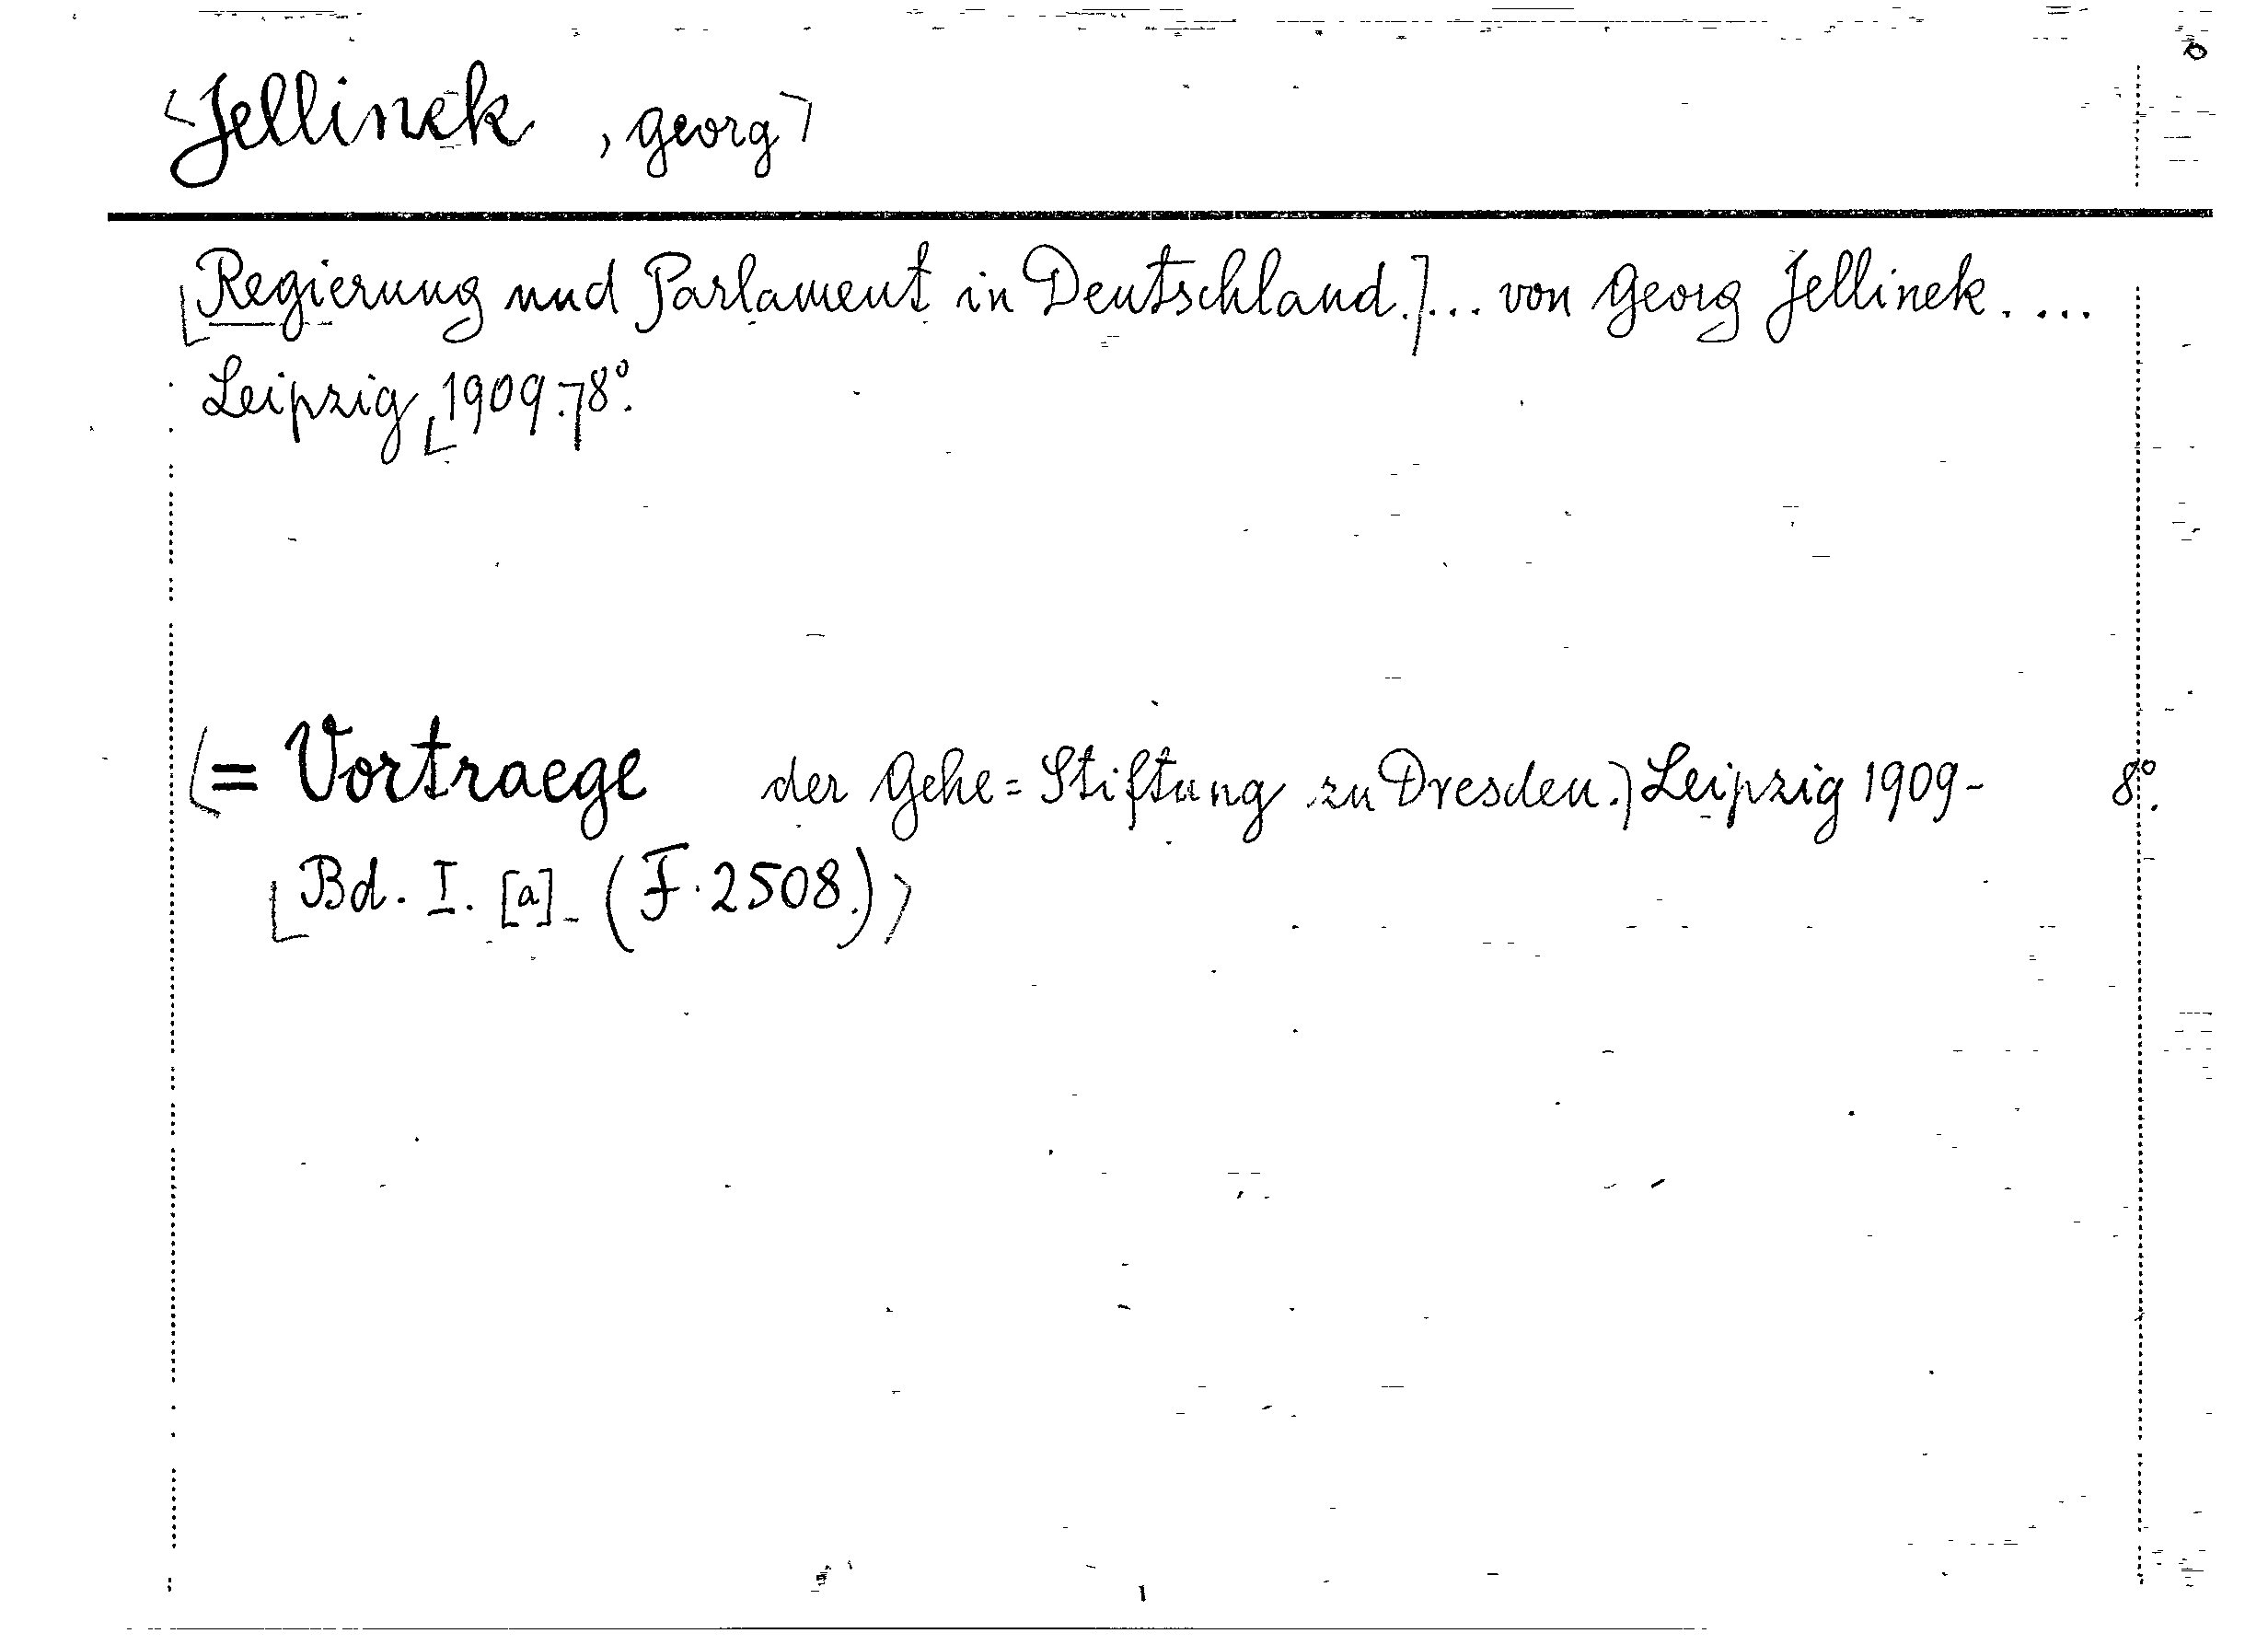 Jellinek, Georg
Regierung und Parlament in Deutschland. ... von Georg Jellinek. ...
Leipzig, 1909. 8°.
= Vortraege der Gehe=Stiftung zu Dresden. Leipzig 1909- 8°.
Bd. I. [a]- (F. 2508.)